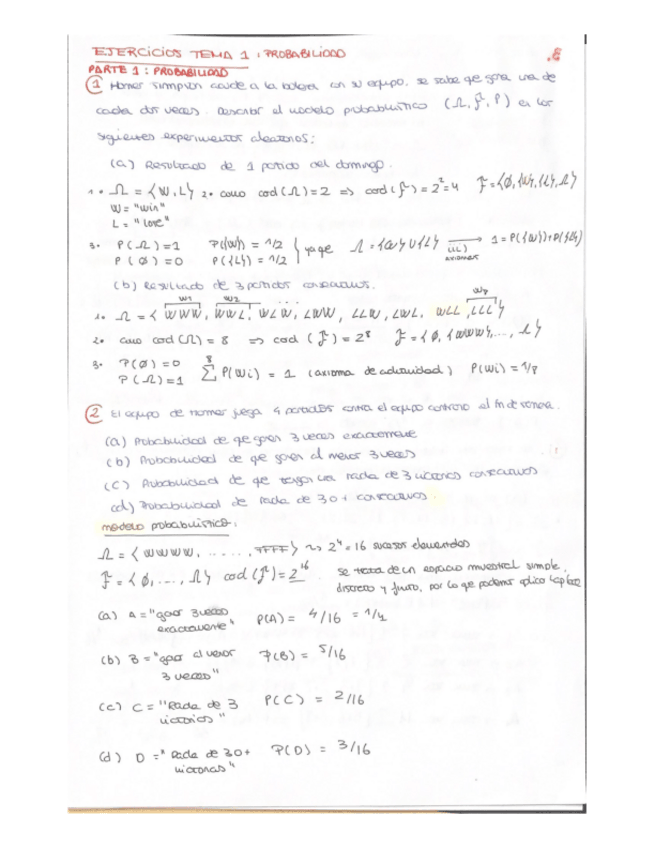 EJERCICIOS TEMA 1: PROBABILIDAD
PARTE 1: PROBABILIDAD
① Homer Simpson acude a la bolera con su equipo, se sabe que gana una de
cada dos veces. Describir el modelo probabilístico (Ω, F, P) en los
siguientes experimentos aleatorios:
(a) Resultado de 1 partido del domingo.
1. Ω = {W, L} 2. como cod(Ω)=2 => cod(F) = 2²=4 F={∅,{W},{L},Ω}
W = "win"
L = "lose"
3. P(Ω)=1 P({W}) = 1/2 } ya que Ω = {W} U {L} → 1=P({W})+P({L})
P(∅)=0 P({L}) = 1/2 axiomas
(b) Resultado de 3 partidos consecutivos.
W1 W2 ... W8
1. Ω = { WWW, WWL, WLW, LWW, LLW, LWL, WLL, LLL}
2. como cod(Ω) = 8 => cod (F) = 2⁸ F = {∅, {WWW}, ..., Ω}
3. P(∅)=0 8∑ P(Wi) = 1 (axioma de aditividad) P(Wi) = 1/8
P(Ω)=1
② El equipo de Homer juega 4 partidos contra el equipo contrario el fin de semana.
(a) Probabilidad de que ganen 3 veces exactamente
(b) Probabilidad de que ganen al menos 3 veces
(c) Probabilidad de que tengan una racha de 3 victorias consecutivas
(d) Probabilidad de racha de 3 o + consecutivas.
modelo probabilístico:
Ω = { WWWW, ......, } ~> 2⁴ = 16 sucesos elementales
F = {∅, ..., Ω} cod(F) = 2¹⁶ se trata de un espacio muestral simple,
discreto y finito, por lo que podemos aplicar Laplace
(a) A = "ganar 3 veces P(A) = 4/16 = 1/4
exactamente"
(b) B = "ganar al menos P(B) = 5/16
3 veces"
(c) C = "Racha de 3 P(C) = 2/16
victorias"
(d) D = "Racha de 3 o + P(D) = 3/16
victorias"